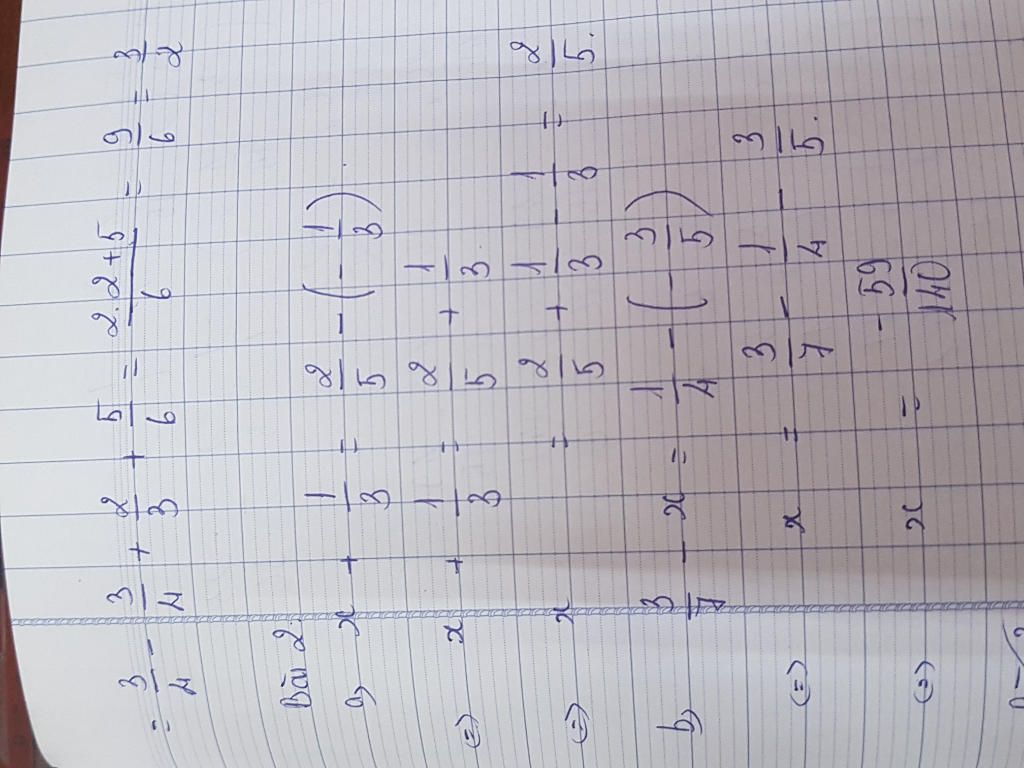 = 3/4 - 3/4 + 2/3 + 5/6 = 2.2+5/6 = 9/6 = 3/2
Bài 2.
a) x + 1/3 = 2/5 - (-1/3)
(=) x + 1/3 = 2/5 + 1/3
(=) x = 2/5 + 1/3 - 1/3 = 2/5.
b) 3/7 - x = 1/4 - (-3/5)
(=) x = 3/7 - 1/4 - 3/5.
(=) x = -59/140